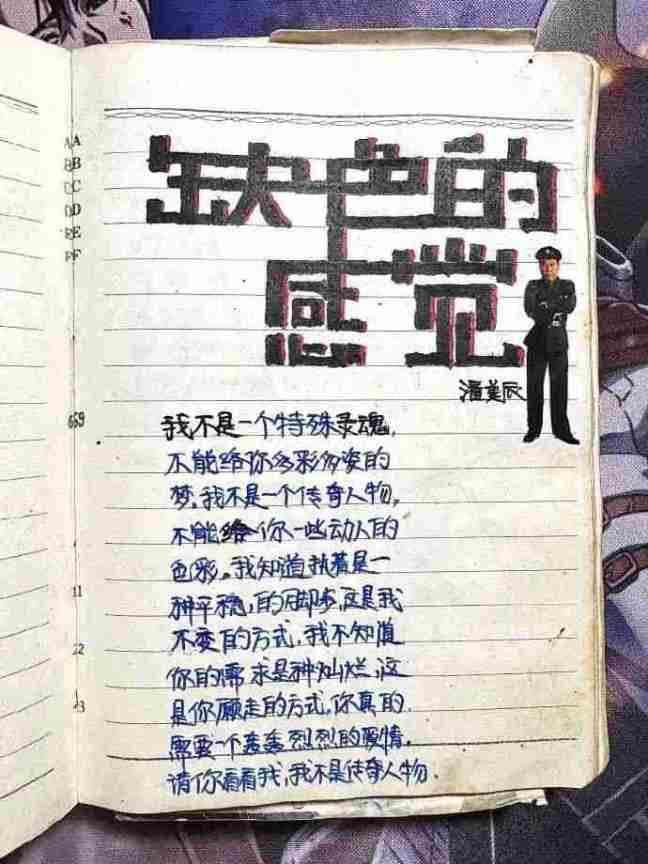 缺色的
感觉
潘美辰
我不是一个特殊灵魂,
不能给你多彩多姿的
梦,我不是一个传奇人物,
不能给你一些动人的
色彩。我知道执着是一
种平稳,的脚步,这是我
不变的方式,我不知道
你的需求是种灿烂,这
是你愿走的方式,你真的
需要一个轰轰烈烈的爱情,
请你看看我,我不是传奇人物.
A
B
C
D
E
F
659
11
22